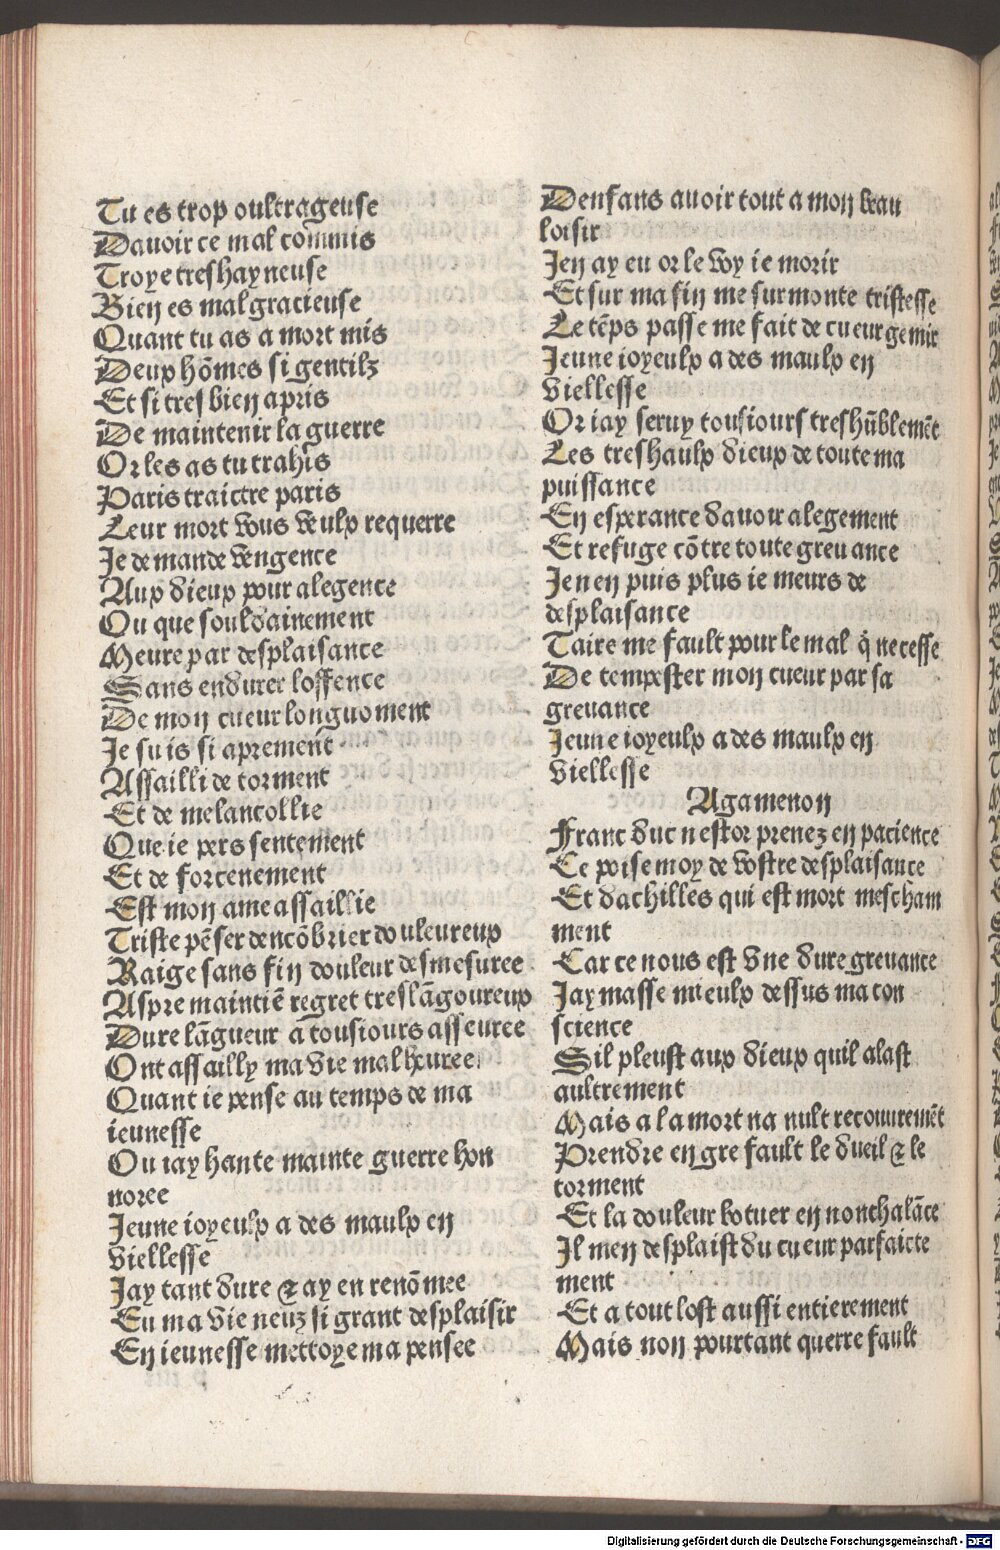 Tu es trop oultrageuse
Dauoir ce mal cõmis
Troye treshayneuse
Bien es mal gracieuse
Quant tu as a mort mis
Deux hõmes si gentilz
Et si tres bien apris
De maintenir la guerre
Or les as tu trahis
Paris traictre paris
Leur mort vous veulx requerre
Je demande vengence
Aux dieux pour alegence
Ou que souldainement
Meure par desplaisance
Sans endurer loffence
De mon cueur longuoment
Je suis si aprement
Assailli de torment
Et de melancollie
Que ie pers sentement
Et de forcenement
Est mon ame assaillie
Triste pẽser dencõbrier douleureux
Raige sans fin douleur desmesuree
Aspre maintiẽ regret treslãgoureux
Dure lãgueur a tousiours asseuree
Ont assailly ma vie malheuree
Quant ie pense au temps de ma
ieunesse
Ou iay hante mainte guerre hon
noree
Jeune ioyeulx a des maulx en
viellesse
Jay tant dure & ay en renõmee
Eu ma vie neuz si grant desplaisir
En ieunesse mettoye ma pensee
Denfans auoir tout a mon beau
loisir
Jen ay eu or le voy ie morir
Et sur ma fin me surmonte tristesse
Le tẽps passe me fait de cueur gemir
Jeune ioyeulx a des maulx en
viellesse
Or iay seruy tousiours treshũblemẽt
Les treshaulx dieux de toute ma
puissance
En esperance dauoir alegement
Et refuge cõtre toute greuance
Jen en puis plus ie meurs de
desplaisance
Taire me fault pour le mal q̃ necesse
De tempester mon cueur par sa
greuance
Jeune ioyeulx a des maulx en
viellesse
Agamenon
Franc duc nestor prenez en pacience
Ce poise moy de vostre desplaisance
Et dachilles qui est mort mescham
ment
Car ce nous est vne dure greuance
Jaymasse mieulx dessus ma con
science
Sil pleust aux dieux quil alast
aultrement
Mais a la mort na nult recouuremẽt
Prendre en gre fault le dueil & le
torment
Et la douleur botuer en nonchalãce
Il men desplaist du cueur parfaicte
ment
Et a tout lost aussi entierement
Mais non pourtant querre fault
Digitalisierung gefördert durch die Deutsche Forschungsgemeinschaft - DFG